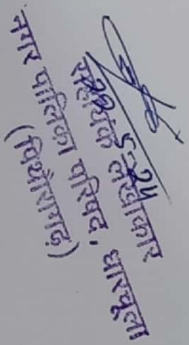 5-24
सहायक लेखाकार
नगर पालिका परिषद, धारचूला
(पिथौरागढ़)